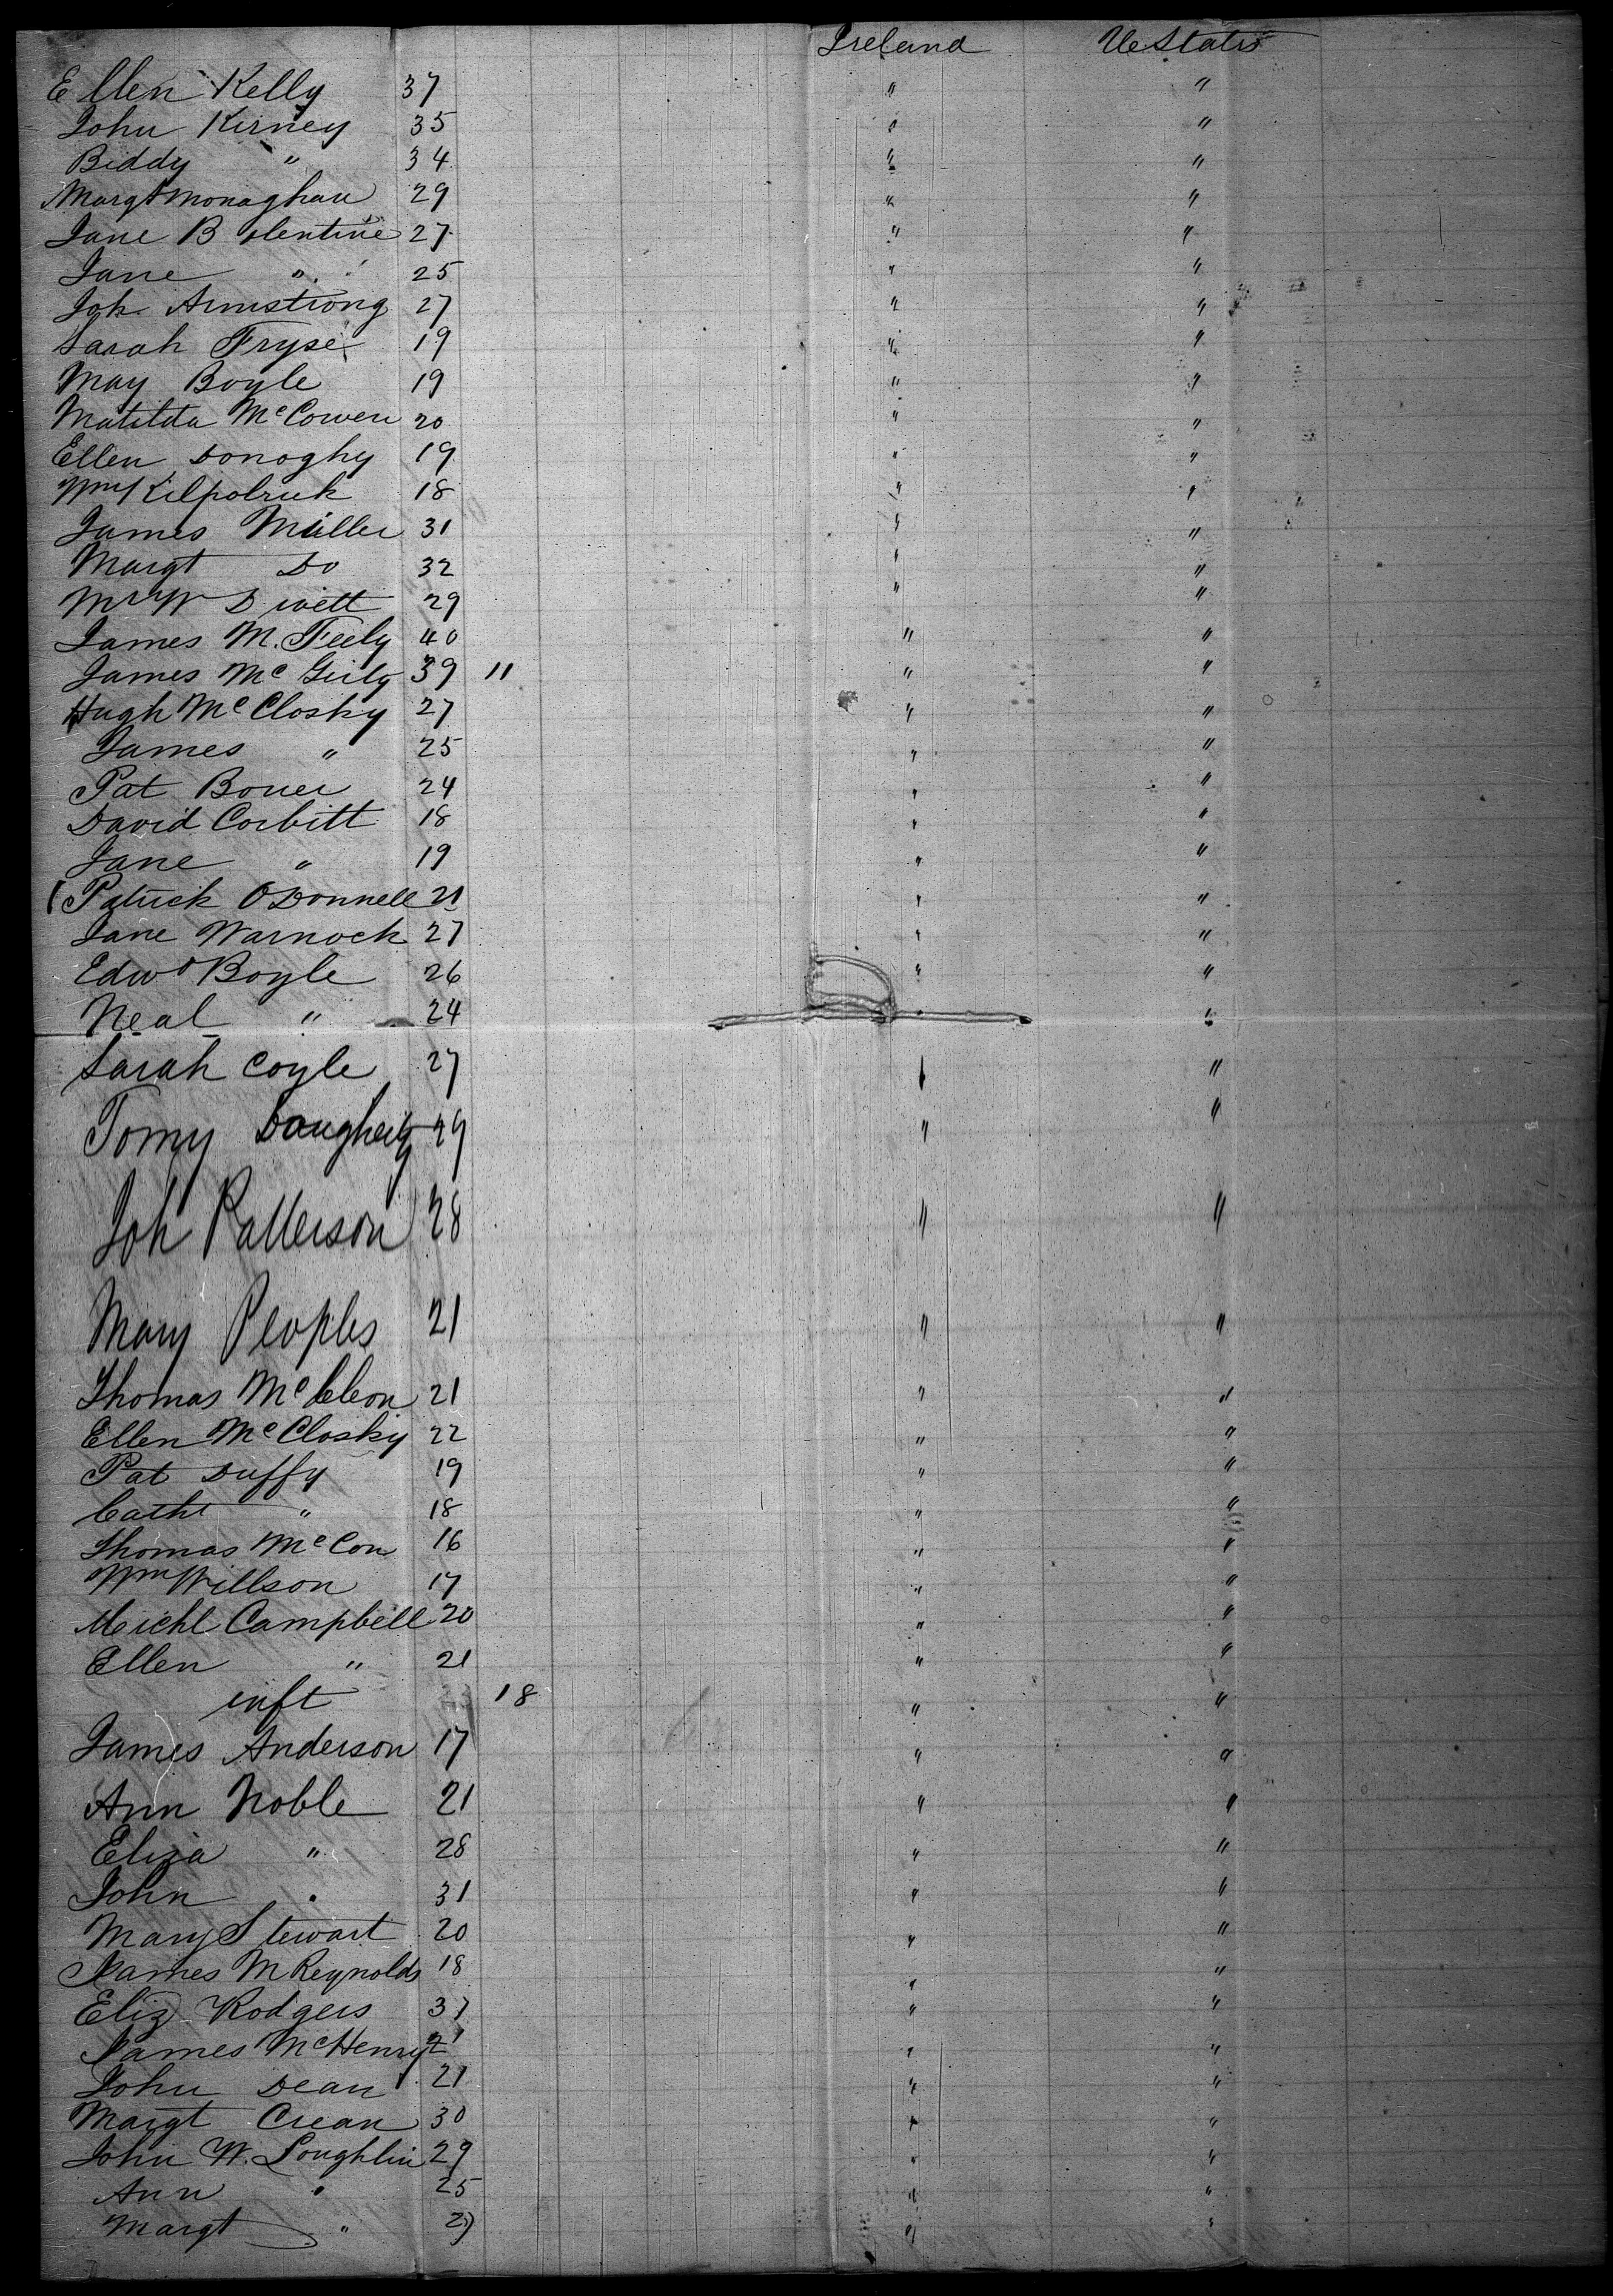 Ireland UeStates
Ellen Kelly 37 " "
John Kirney 35 " "
Biddy " 34 " "
Margt Monaghan 29 " "
Jane B lentine 27 " "
Jane " 25 " "
Joh Armstrong 27 " "
Sarah Fryse 19 " "
May Boyle 19 " "
Matilda McCowen 20 " "
Ellen Donoghy 19 " "
Wm Kilpatrick 18 " "
James Miller 31 " "
Margt Do 32 " "
29 " "
James M. Feely 40 " "
James Mc 39 11 " "
Hugh McClosky 27 " "
James " 25 " "
Pat Boner 24 " "
David Corbitt 18 " "
Jane " 19 " "
Patrick ODonnell 21 " "
Jane Warnock 27 " "
Edwd Boyle 26 " "
Neal " 24 " "
Sarah Coyle 27 " "
Tomy Daugherty 29 " "
Joh Patterson 28 " "
Mary Peoples 21 " "
Thomas 21 " "
Ellen McClosky 22 " "
Pat Duffy 19 " "
Cathe " 18 " "
Thomas McCon 16 " "
Wm Willson 17 " "
Michl Campbell 20 " "
Ellen " 21 " "
inft 18 " "
James Anderson 17 " "
Ann Noble 21 " "
Eliza " 28 " "
John " 31 " "
Mary Stewart 20 " "
James M Reynolds 18 " "
Eliz Rodgers 37 " "
James McHenry 21 " "
John Dean 21 " "
Margt Crean 30 " "
John W. Loughlin 29 " "
Ann " 25 " "
Margt " 27 " "